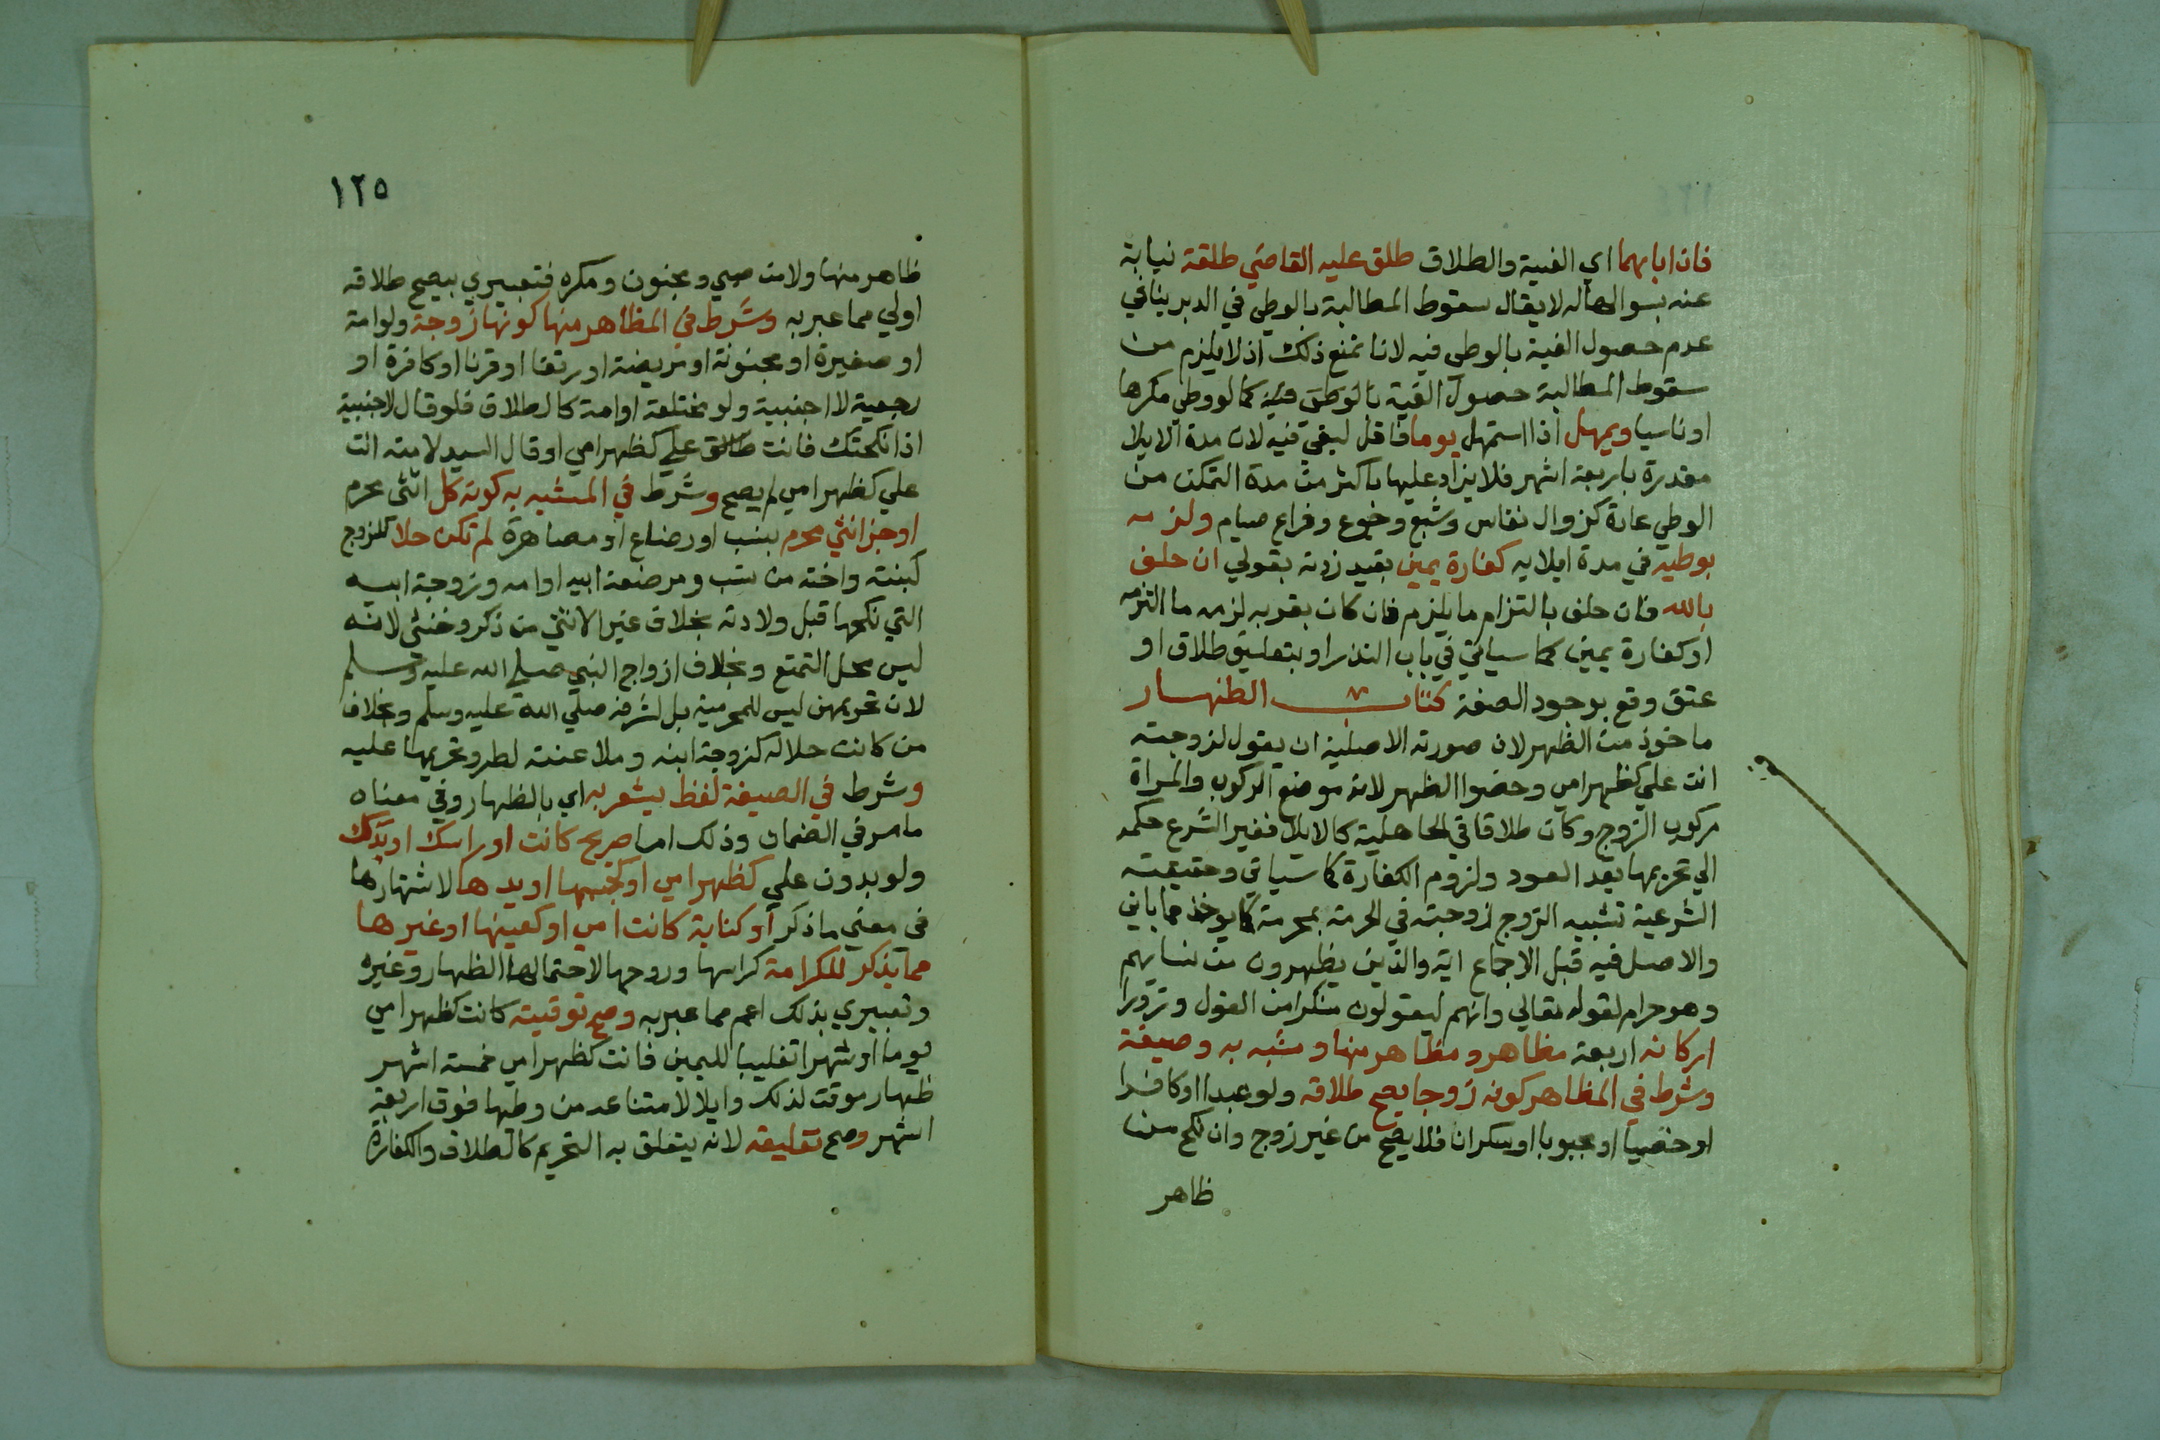 فان اباهما اي الفية والطلاق طلق عليه القاضي طلقة نيابة
عنه بسوالها له لا يقال سقوط المطالبة بالوطي في الدبر ينافي
عدم حصول الفية بالوطي فيه لانا نمنع ذلك اذ لا يلزم من
سقوط المطالبة حصول الفية بالوطي فيه كما لو وطي مكرها
او ناسيا ويمهل اذا استمهل يوما فاقل ليفي فيه لان مدة الايلا
مقدرة باربعة اشهر فلا يزاد عليها باكثر من مدة التمكن من
الوطي عادة كزوال نفاس وشبع وجوع وفراغ صيام ولزمه
بوطيه في مدة ايلايه كفارة يمين بقيد زدته بقولي ان حلف
بالله فان حلف بالتزام ما يلزم فان كان بقربه لزمه ما التزمه
او كفارة يمين كما سياتي في باب النذر او بتعليق طلاق او
عتق وقع بوجود الصفة كتاب الظهار
ماخوذ من الظهر لان صورته الاصلية ان يقول لزوجته
انت علي كظهر امي وخصوا الظهر لانه موضع الركوب والمراة
مركوب الزوج وكان طلاقا في الجاهلية كالايلا فغير الشرع حكمه
الي تحريمها بعد العود ولزوم الكفارة كما سياتي وحقيقته
الشرعية تشبيه الزوج زوجته في الحرمة بمحرمة كما يوخذ مما ياتي
والاصل فيه قبل الاجماع اية والذين يظهرون من نسايهم
وهو حرام لقوله تعالي وانهم ليقولون منكرا من القول وزورا
اركانه اربعة مظاهر ومظاهر منها ومشبه به وصيغة
وشرط في المظاهر كونه زوجا يصح طلاقه ولو عبدا او كافرا
او خصيا او مجبوبا او سكران فلا يصح من غير زوج وان نكح من
ظاهر
١٢٥
ظاهر منها ولا من صبي ومجنون ومكره فتعبيري بيصح طلاقه
اولي مما عبر به وشرط في المظاهر منها كونها زوجة ولو امة
او صغيرة او مجنونة او مريضة او رتقا او قرنا او كافرة او
رجعية لا اجنبية ولو مختلعة او امة كالطلاق فلو قال لاجنبية
اذا نكحتك فانت طالق علي كظهر امي او قال السيد لامته انت
علي كظهر امي لم يصح وشرط في المشبه به كونه كل انثي محرم
او جز انثي محرم بنسب او رضاع او مصاهرة لم تكن حلا للزوج
كبنته واخته من نسب ومرضعة ابيه او امه وزوجة ابيه
التي نكحها قبل ولادته بخلاف غير الانثي من ذكر وخنثي لانه
ليس محل التمتع وبخلاف ازواج النبي صلي الله عليه وسلم
لان تحريمهن ليس للمحرمية بل لشرفه صلي الله عليه وسلم وبخلاف
من كانت حلا له كزوجة ابنه وملاعنته لطرو تحريمها عليه
وشرط في الصيغة لفظ يشعر به اي بالظهار وفي معناه
ما مر في الضمان وذلك اما صريح كانت او راسك او يدك
ولو بدون علي كظهر امي او كجسمها او يدها لاشتهارها
في معني ما ذكر او كناية كانت امي او كعينها او غيرها
مما يذكر للكرامة كراسها وروحها لاحتمالها الظهار وغيره
وتعبيري بذلك اعم مما عبر به وصح توقيته كانت كظهر امي
يوما او شهرا تغليبا لليمين فانت كظهر امي خمسة اشهر
ظهار موقت لذلك وايلا لامتناعه من وطيها فوق اربعة
اشهر وصح تعليقه لانه يتعلق به التحريم كالطلاق والكفارة